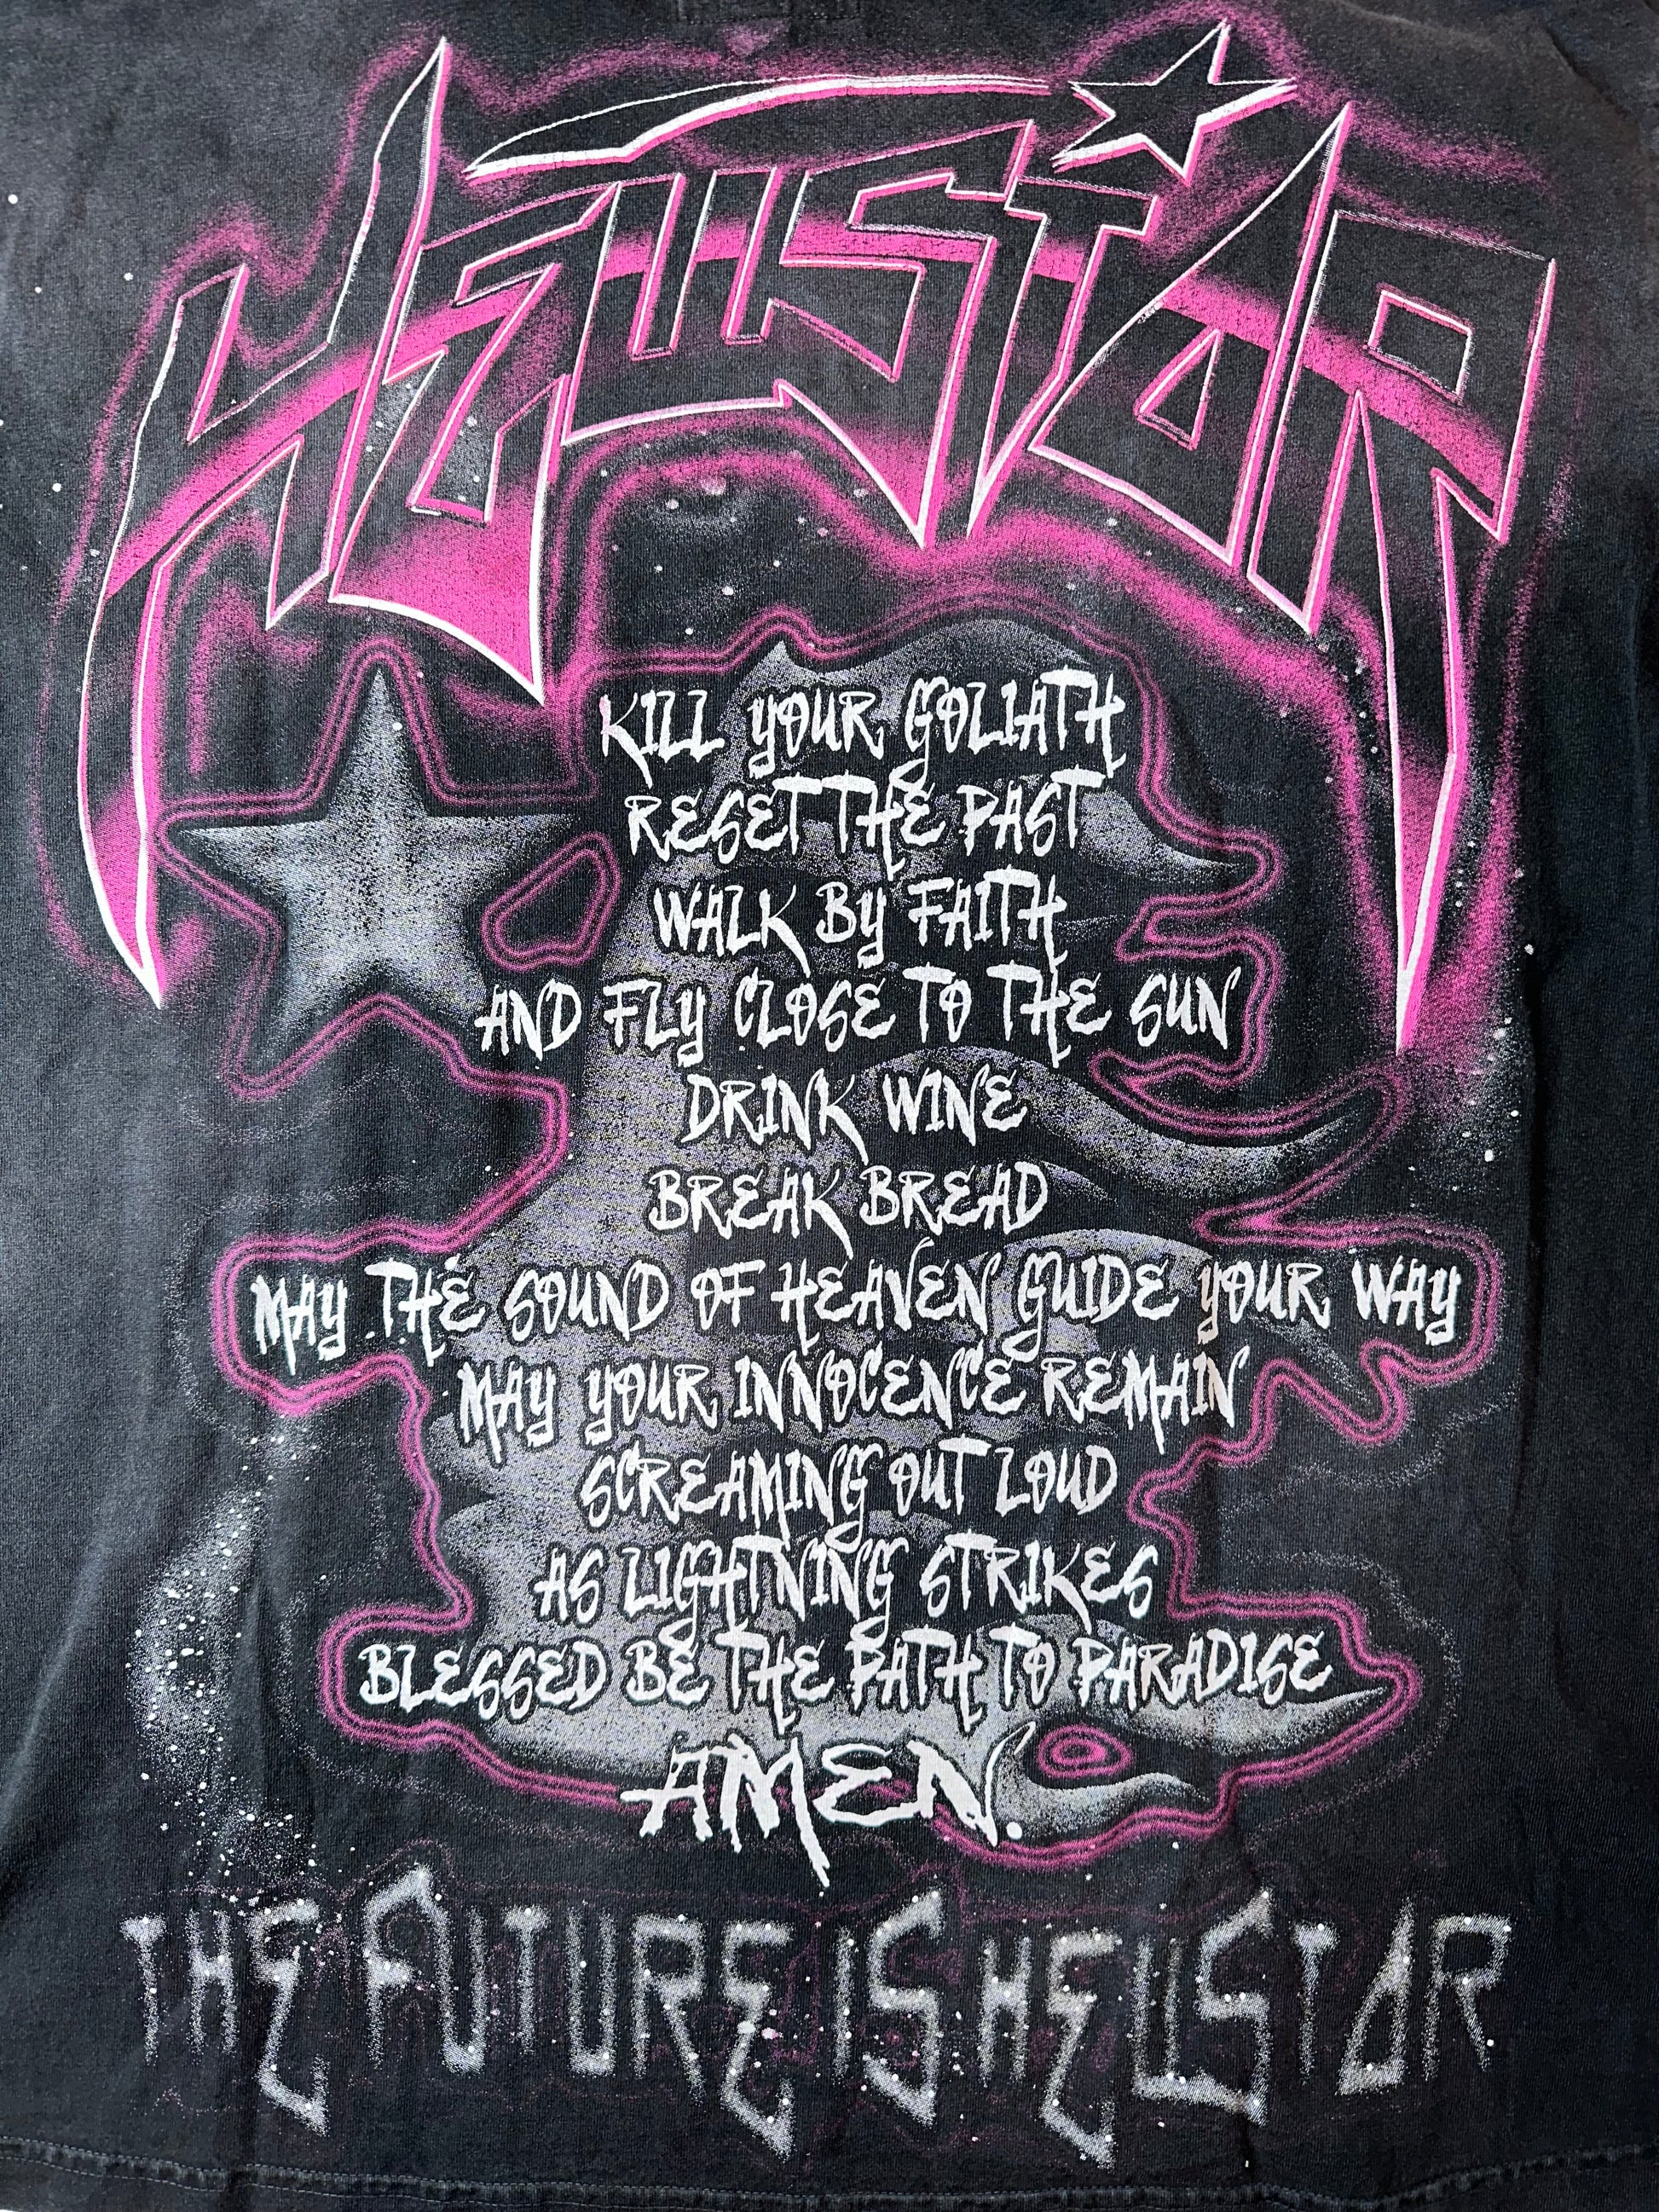 HELLSTAR
KILL YOUR GOLIATH
RESET THE PAST
WALK BY FAITH
AND FLY CLOSE TO THE SUN
DRINK WINE
BREAK BREAD
MAY THE SOUND OF HEAVEN GUIDE YOUR WAY
MAY YOUR INNOCENCE REMAIN
SCREAMING OUT LOUD
AS LIGHTNING STRIKES
BLESSED BE THE PATH TO PARADISE
AMEN.
THE FUTURE IS HELLSTAR